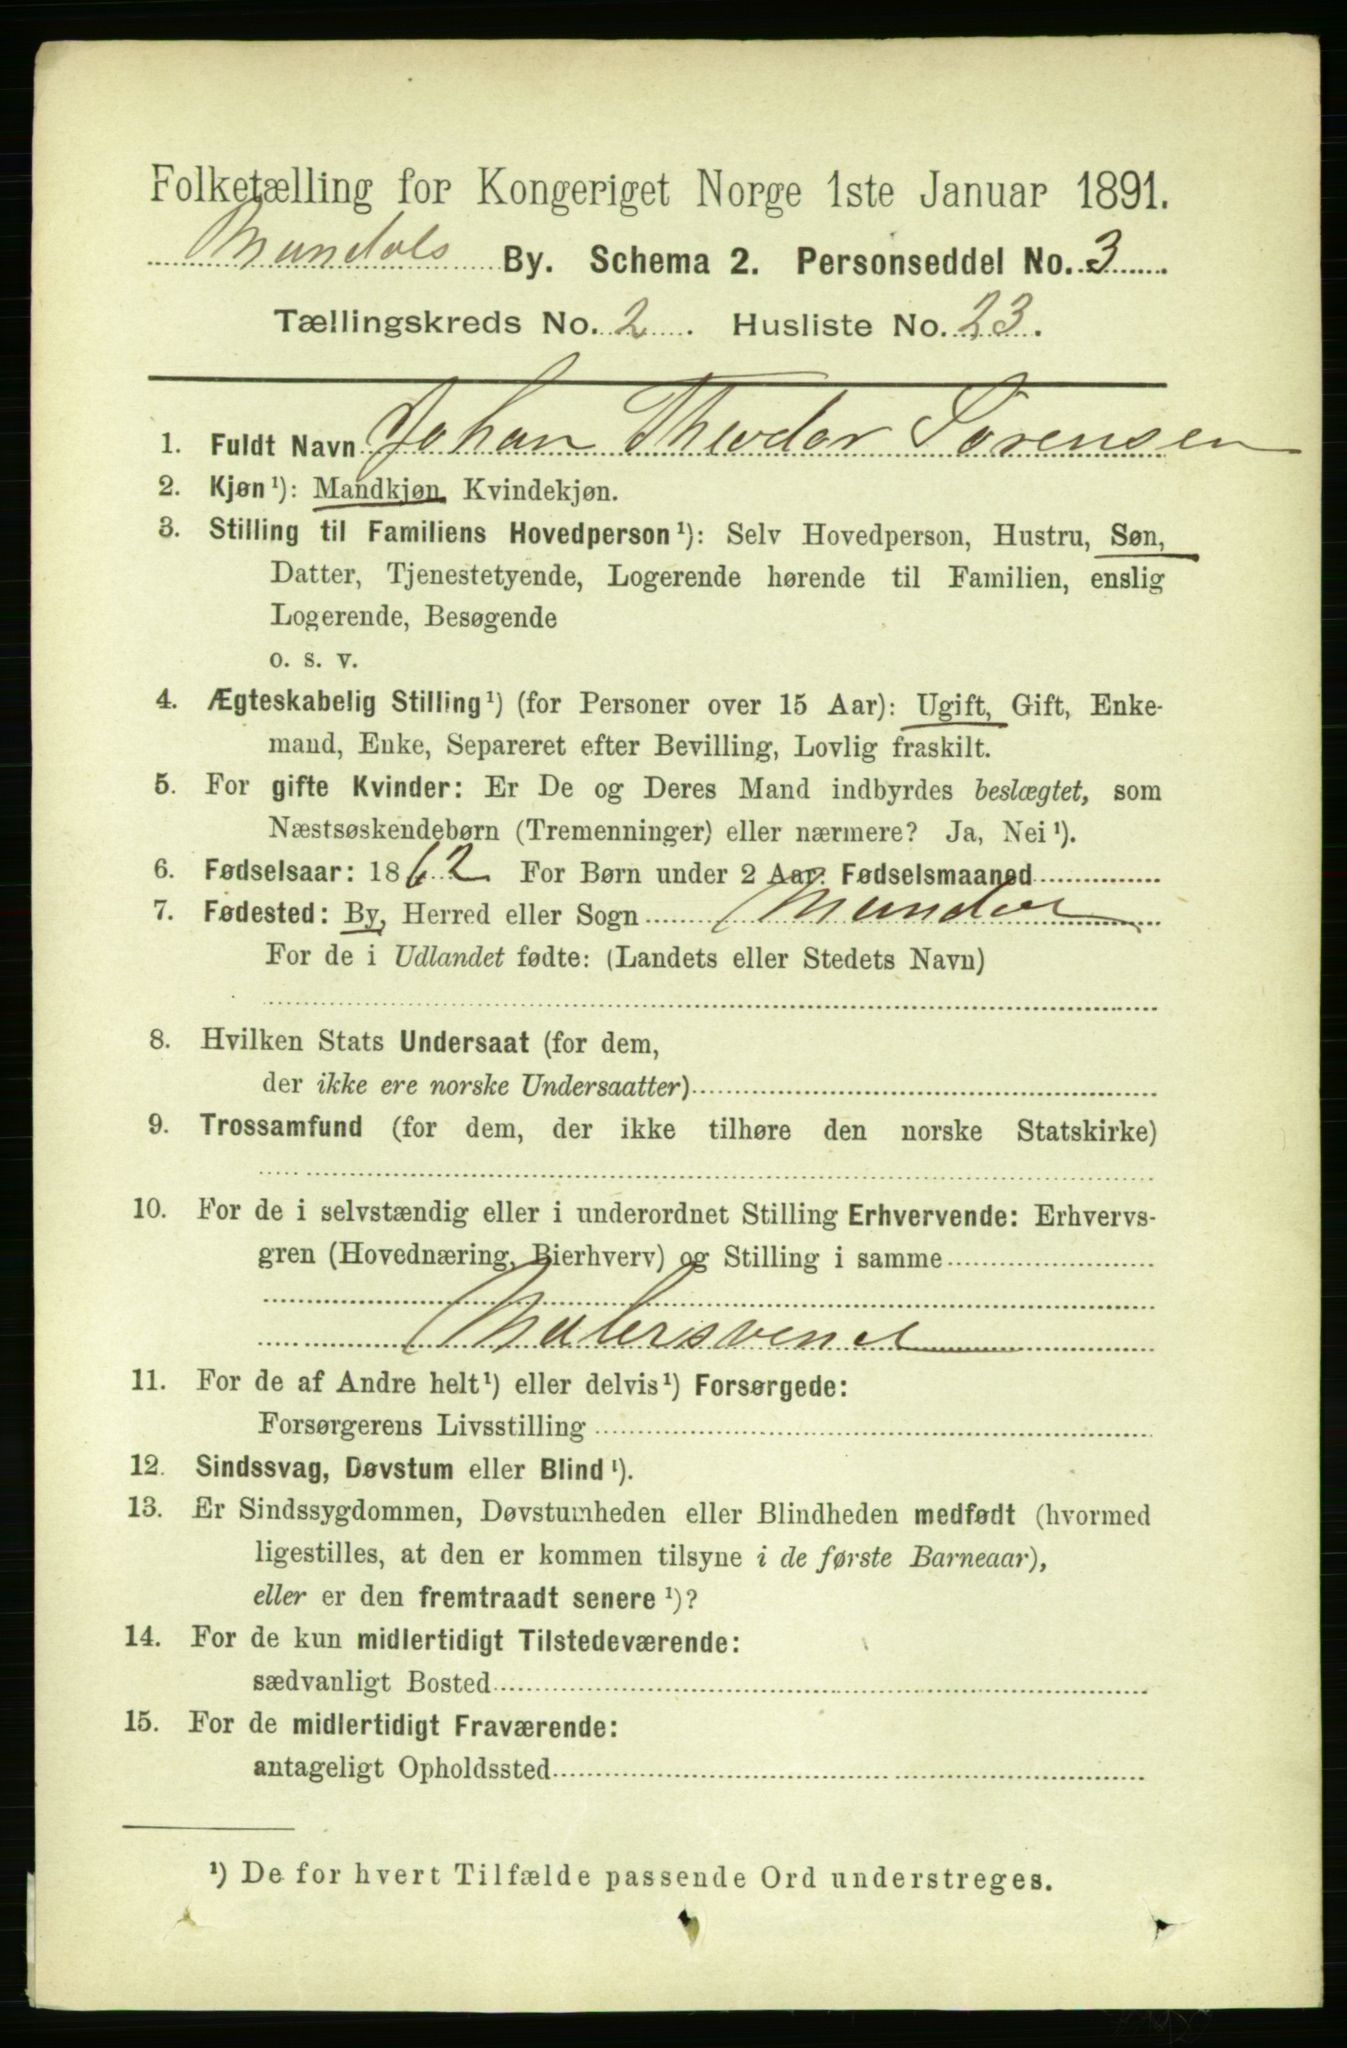 Folketælling for Kongeriget Norge 1ste Januar 1891.
Mandals By. Schema 2. Personseddel No. 3
Tællingskreds No. 2. Husliste No. 23.
1. Fuldt Navn Johan Theodor Sørensen
2. Kjøn ¹): Mandkjøn Kvindekjøn.
3. Stilling til Familiens Hovedperson ¹): Selv Hovedperson, Hustru, Søn,
Datter, Tjenestetyende, Logerende hørende til Familien, enslig
Logerende, Besøgende
o. s. v.
4. Ægteskabelig Stilling ¹) (for Personer over 15 Aar): Ugift, Gift, Enke-
mand, Enke, Separeret efter Bevilling, Lovlig fraskilt.
5. For gifte Kvinder: Er De og Deres Mand indbyrdes beslægtet, som
Næstsøskendebørn (Tremenninger) eller nærmere? Ja, Nei ¹).
6. Fødselsaar: 1862 For Børn under 2 Aar. Fødselsmaaned
7. Fødested: By, Herred eller Sogn Mandal
For de i Udlandet fødte: (Landets eller Stedets Navn)
8. Hvilken Stats Undersaat (for dem,
der ikke ere norske Undersaatter)
9. Trossamfund (for dem, der ikke tilhøre den norske Statskirke)
10. For de i selvstændig eller i underordnet Stilling Erhvervende: Erhvervs-
gren (Hovednæring, Bierhverv) og Stilling i samme
Malersvend
11. For de af Andre helt ¹) eller delvis ¹) Forsørgede:
Forsørgerens Livsstilling
12. Sindssvag, Døvstum eller Blind ¹).
13. Er Sindssygdommen, Døvstumheden eller Blindheden medfødt (hvormed
ligestilles, at den er kommen tilsyne i de første Barneaar),
eller er den fremtraadt senere ¹)?
14. For de kun midlertidigt Tilstedeværende:
sædvanligt Bosted
15. For de midlertidigt Fraværende:
antageligt Opholdssted
¹) De for hvert Tilfælde passende Ord understreges.